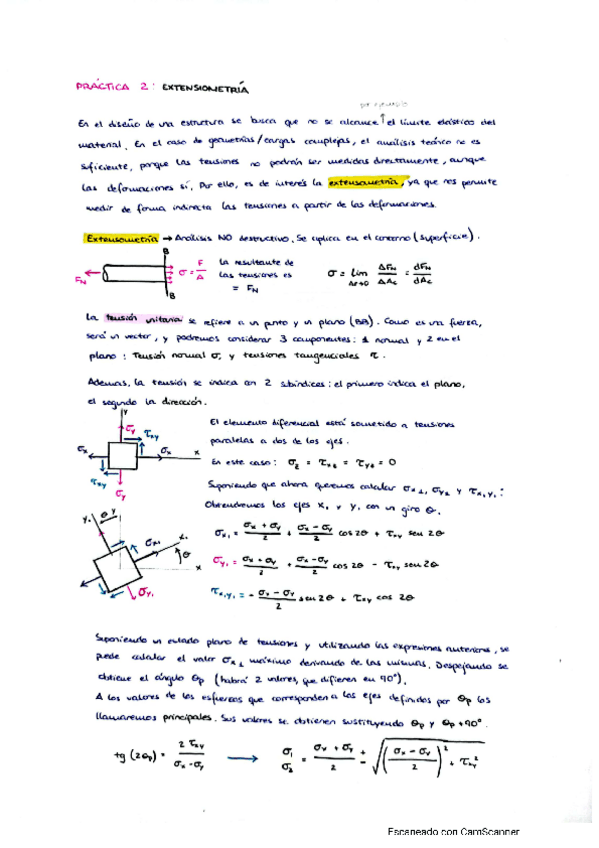 PRÁCTICA 2: EXTENSIOMETRÍA
por ejemplo
En el diseño de una estructura se busca que no se alcance ↑ el límite elástico del
material. En el caso de geometrías/cargas complejas, el análisis teórico no es
suficiente, porque las tensiones no podrán ser medidas directamente, aunque
las deformaciones sí. Por ello, es de interés la extensometría, ya que nos permite
medir de forma indirecta las tensiones a partir de las deformaciones.
Extensometría → Análisis NO destructivo. Se aplica en el contorno (superficie).
B
F_N σ = F/A
B
La resultante de
las tensiones es
= F_N
σ = lim Δc→0 ΔF_N/ΔA_c = dF_N/dA_c
La tensión unitaria se refiere a un punto y un plano (BB). Como es una fuerza,
será un vector, y podremos considerar 3 componentes: 1 normal y 2 en el
plano: Tensión normal σ, y tensiones tangenciales τ.
Además, la tensión se indica con 2 subíndices: el primero indica el plano,
el segundo la dirección.
y
σy τxy
σx σx x
τxy
σy
El elemento diferencial está sometido a tensiones
paralelas a dos de los ejes.
En este caso: σz = τxz = τyz = 0
Suponiendo que ahora queremos calcular σx1, σy1 y τx1y1:
Obtendremos los ejes x1 y y1 con un giro θ.
y1 θ y
σx1 x1
θ
x
σy1
σx1 = (σx + σy)/2 + (σx - σy)/2 cos 2θ + τxy sen 2θ
σy1 = (σx + σy)/2 + (σx - σy)/2 cos 2θ - τxy sen 2θ
τx1y1 = - (σx - σy)/2 sen 2θ + τxy cos 2θ
Suponiendo un estado plano de tensiones y utilizando las expresiones anteriores, se
puede calcular el valor σx1 máximo derivando de las mismas. Despejando se
obtiene el ángulo θp (habrá 2 valores, que difieren en 90°).
A los valores de los esfuerzos que corresponden a los ejes definidos por θp los
llamaremos principales. Sus valores se obtienen sustituyendo θp y θp+90°.
tg (2θp) = 2 τxy/(σx - σy) → σ1 σ2 = (σx + σy)/2 ± √(((σx - σy)/2)² + τxy²)
Escaneado con CamScanner